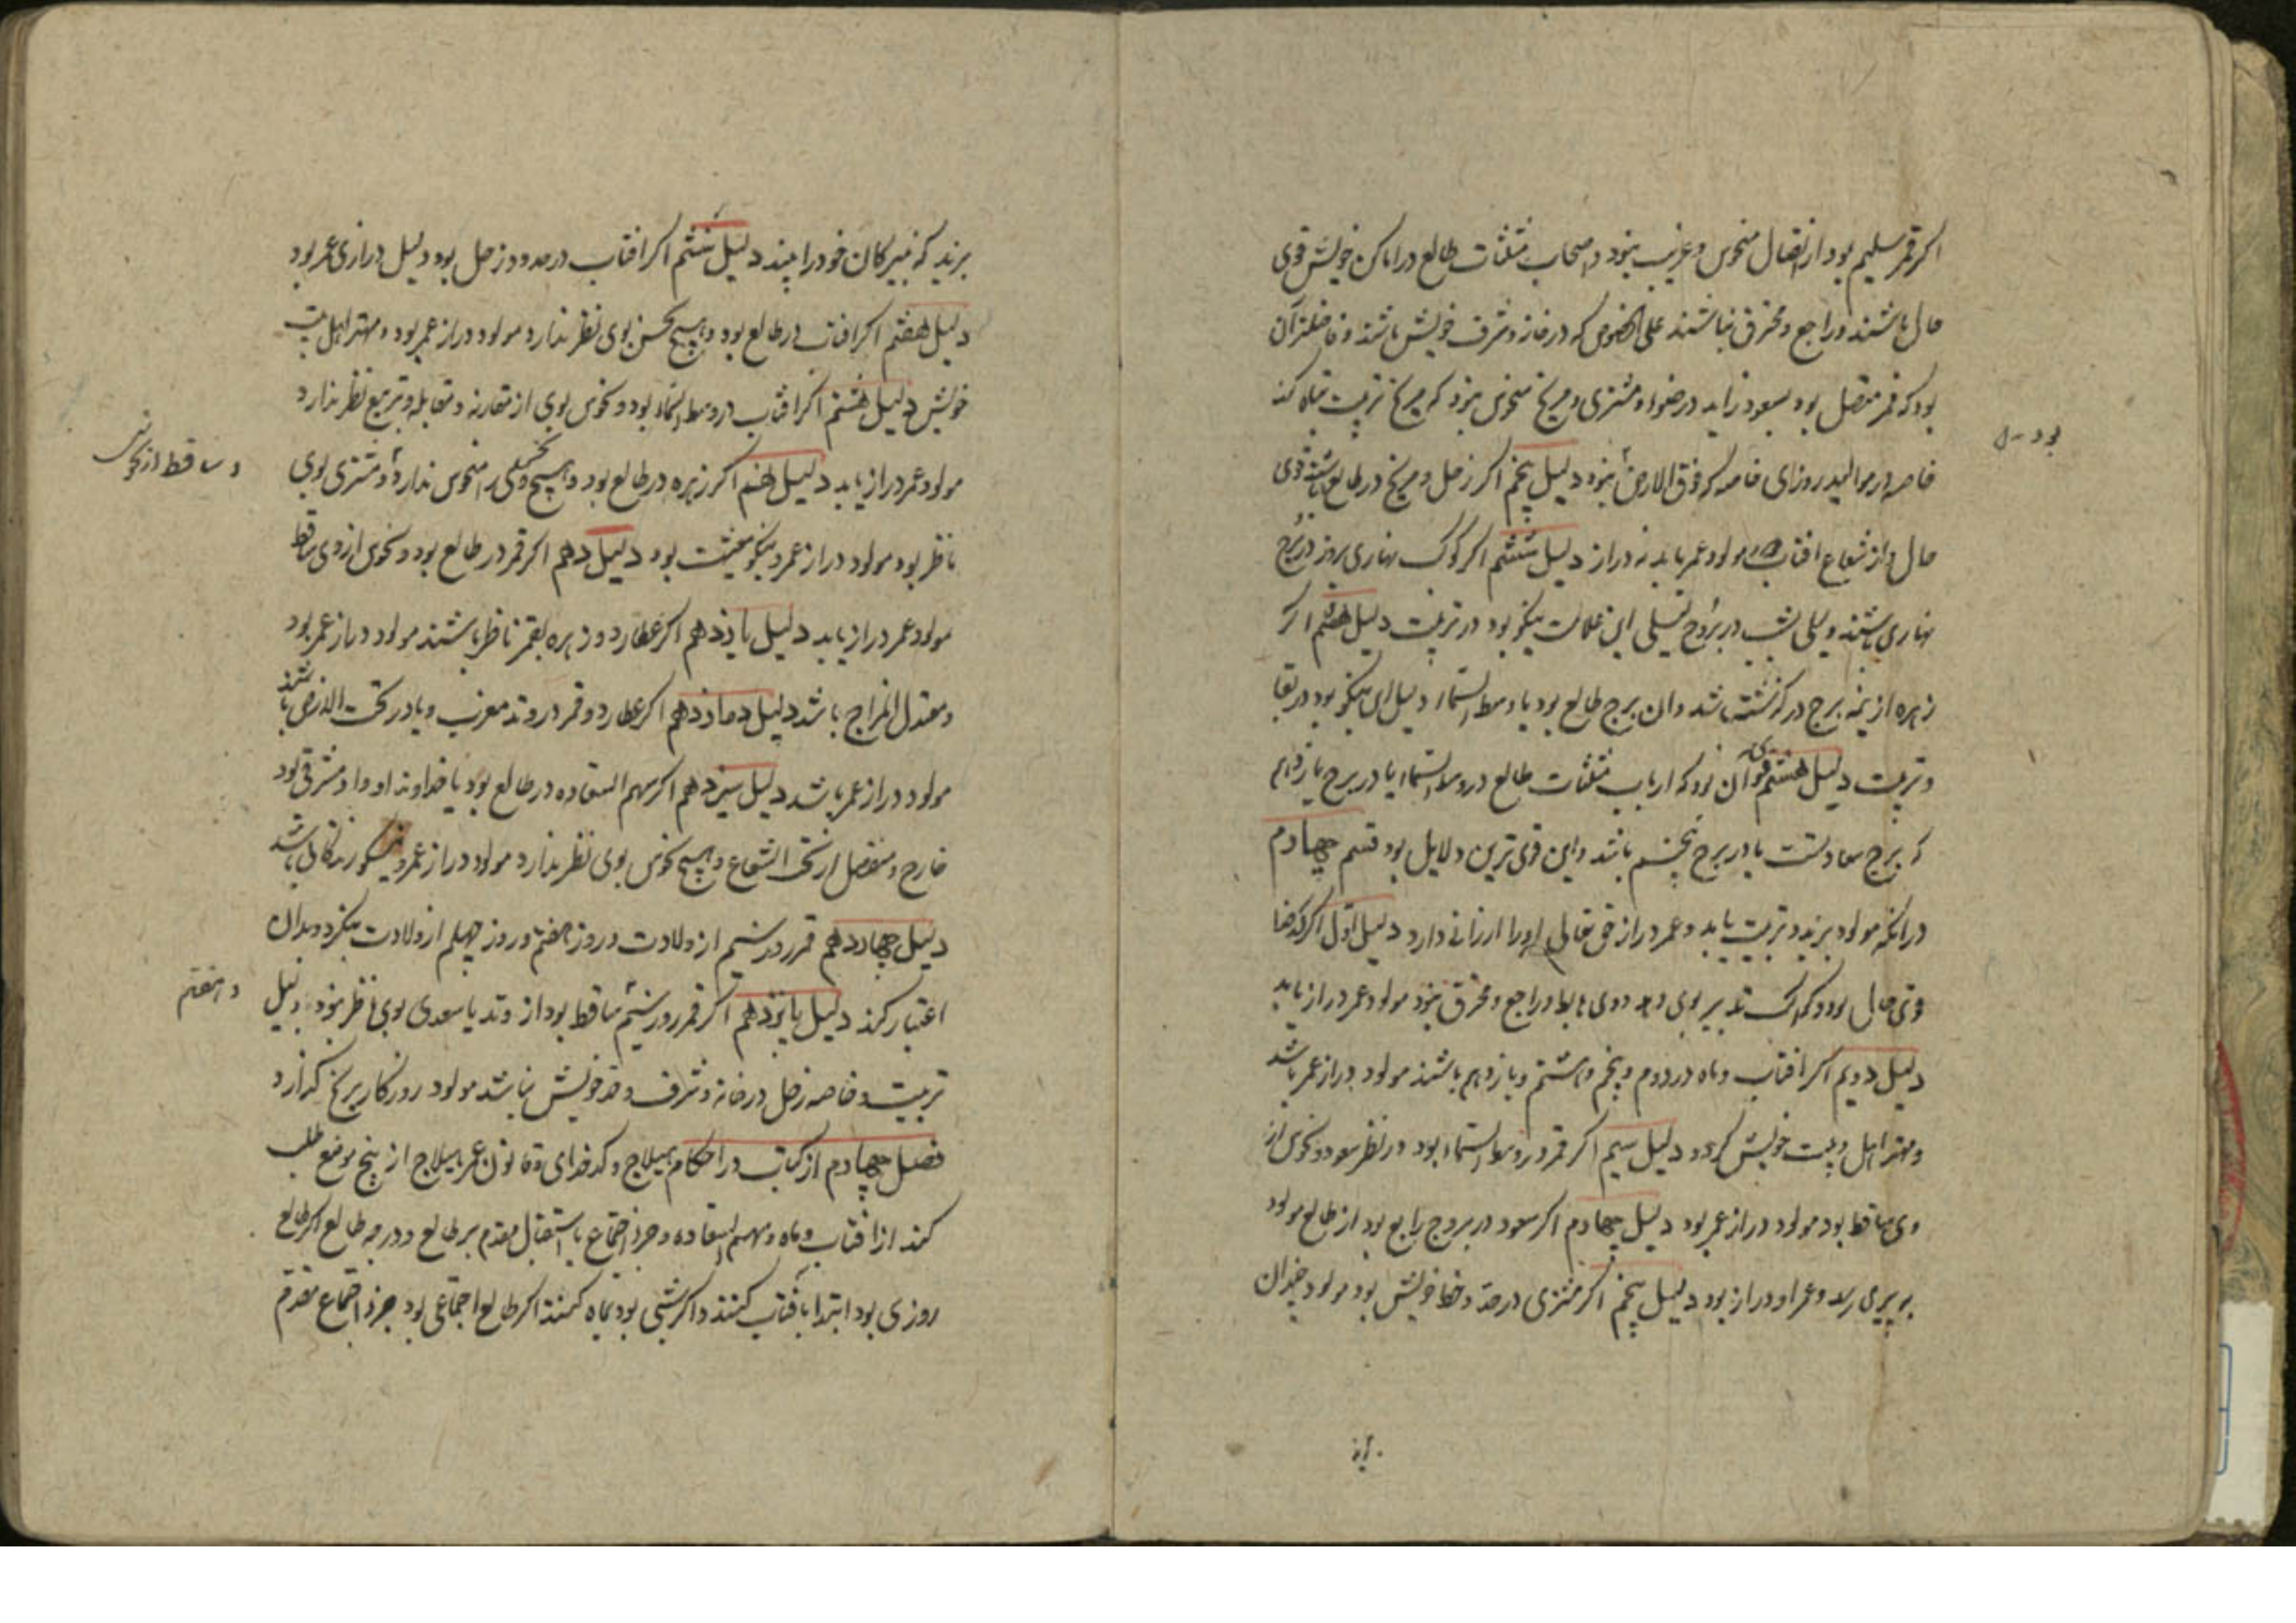 اکر قمر سلیم بود از اتصال منحوس و غریب نبود و اصحاب مثلثات طالع در اماکن خویش قوی
حال باشند و راجع و محترق نباشند علی الخصوص که در خانه و شرف خویش باشند و فاضلتر آن
بود که قمر متصل بود بسعود زاید در ضوء و مشتری و مریخ منحوس نبود که مریخ تربیت تباه کند
خاصه در موالید روزی خاصه که فوق الارض نبود دلیل پنجم اکر زحل و مریخ در طالع باشند قوی
حال و از شعاع افتاب مولود عمر یابد نه دراز دلیل ششم اکر کوکب نهاری بروز در برج
نهاری باشند و لیلی بشب در بروج لیلی این علامت نیکو بود در تربیت دلیل هفتم اکر
زهره از نیمه برج در کذشته باشد و ان برج طالع بود یا وسط السماء دلیل نیکو بود در بقا
و تربیت دلیل هشتم قوی آن بود که ارباب مثلثات طالع در وسط السماء یا در برج یازدهم
که برج سعادتست یا در برج پنجم باشد و این قوی ترین دلایل بود قسم چهارم
در انکه مولود بزید و تربیت یابد و عمر دراز حق تعالی او را ارزانی دارد دلیل اول اکر کدخدا
قوی حال بود و کوکب تدبیر بوی دهد و وی هابط و راجع و محترق نبود مولود عمر دراز یابد
دلیل دویم اکر افتاب و ماه در دوم و پنجم و هشتم و یازدهم باشند مولود دراز عمر باشد
و مهتر اهل و بیت خویش کردد دلیل سیم اکر قمر در وسط السماء بود در نظر سعود و نحوس از
وی ساقط بود مولود دراز عمر بود دلیل چهارم اکر سعود در بروج رابع بود از طالع مولود
به پیری رسد و عمر او دراز بود دلیل پنجم اکر مشتری در حد و حظ خویش بود مولود چندان
بزید که نبیرکان خود را بیند دلیل ششم اکر افتاب در حدود زحل بود دلیل درازی عمر بود
دلیل هفتم اکر افتاب در طالع بود و هیچ نحس بوی نظر ندارد مولود دراز عمر بود و مهتر اهل بیت
خویش دلیل هشتم اکر افتاب در وسط السماء بود و نحوس بوی از مقارنه و مقابله و تربیع نظر ندارد
مولود عمر دراز یابد دلیل نهم اکر زهره در طالع بود و هیچ منحوس ندارد و مشتری بوی
و ساقط از نحوس
ناظر بود مولود دراز عمر و نیکو معیشت بود دلیل دهم اکر قمر در طالع بود و نحوس از وی ساقط
مولود عمر دراز یابد دلیل یازدهم اکر عطارد و زهره بقمر ناظر باشند مولود دراز عمر بود
و معتدل المزاج باشد دلیل دوازدهم اکر عطارد و قمر در وتد مغرب و یا در تحت الارض باشند
مولود دراز عمر باشد دلیل سیزدهم اکر سهم السعاده در طالع بود یا خداوند او و او مشرقی بود
خارج و منفصل از تحت الشعاع و هیچ نحوس بوی نظر ندارد مولود دراز عمر و نیکو زندکانی باشد
دلیل چهاردهم قمر روز سیم از ولادت و روز هفتم و روز چهلم از ولادت بنکرد و بدان
اعتبار کند دلیل پانزدهم اکر قمر روز سیم ساقط بود از وتد یا سعدی بوی ناظر نبود دلیل
و هفتم
تربیت و خاصه زحل در خانه و شرف و حد خویش نباشد مولود روزکار برنج کذارد
فصل چهارم از کتاب در احکام هیلاج و کدخدای و قانون عمر هیلاج از پنج موضع طلب
کند از افتاب و ماه و سهم السعاده و جزء اجتماع یا استقبال مقدم بر طالع و درجه طالع اکر طالع
روزی بود ابتدا بافتاب کنند و اکر شبی بود بماه کنند اکر طالع اجتماعی بود جزء اجتماع مقدم